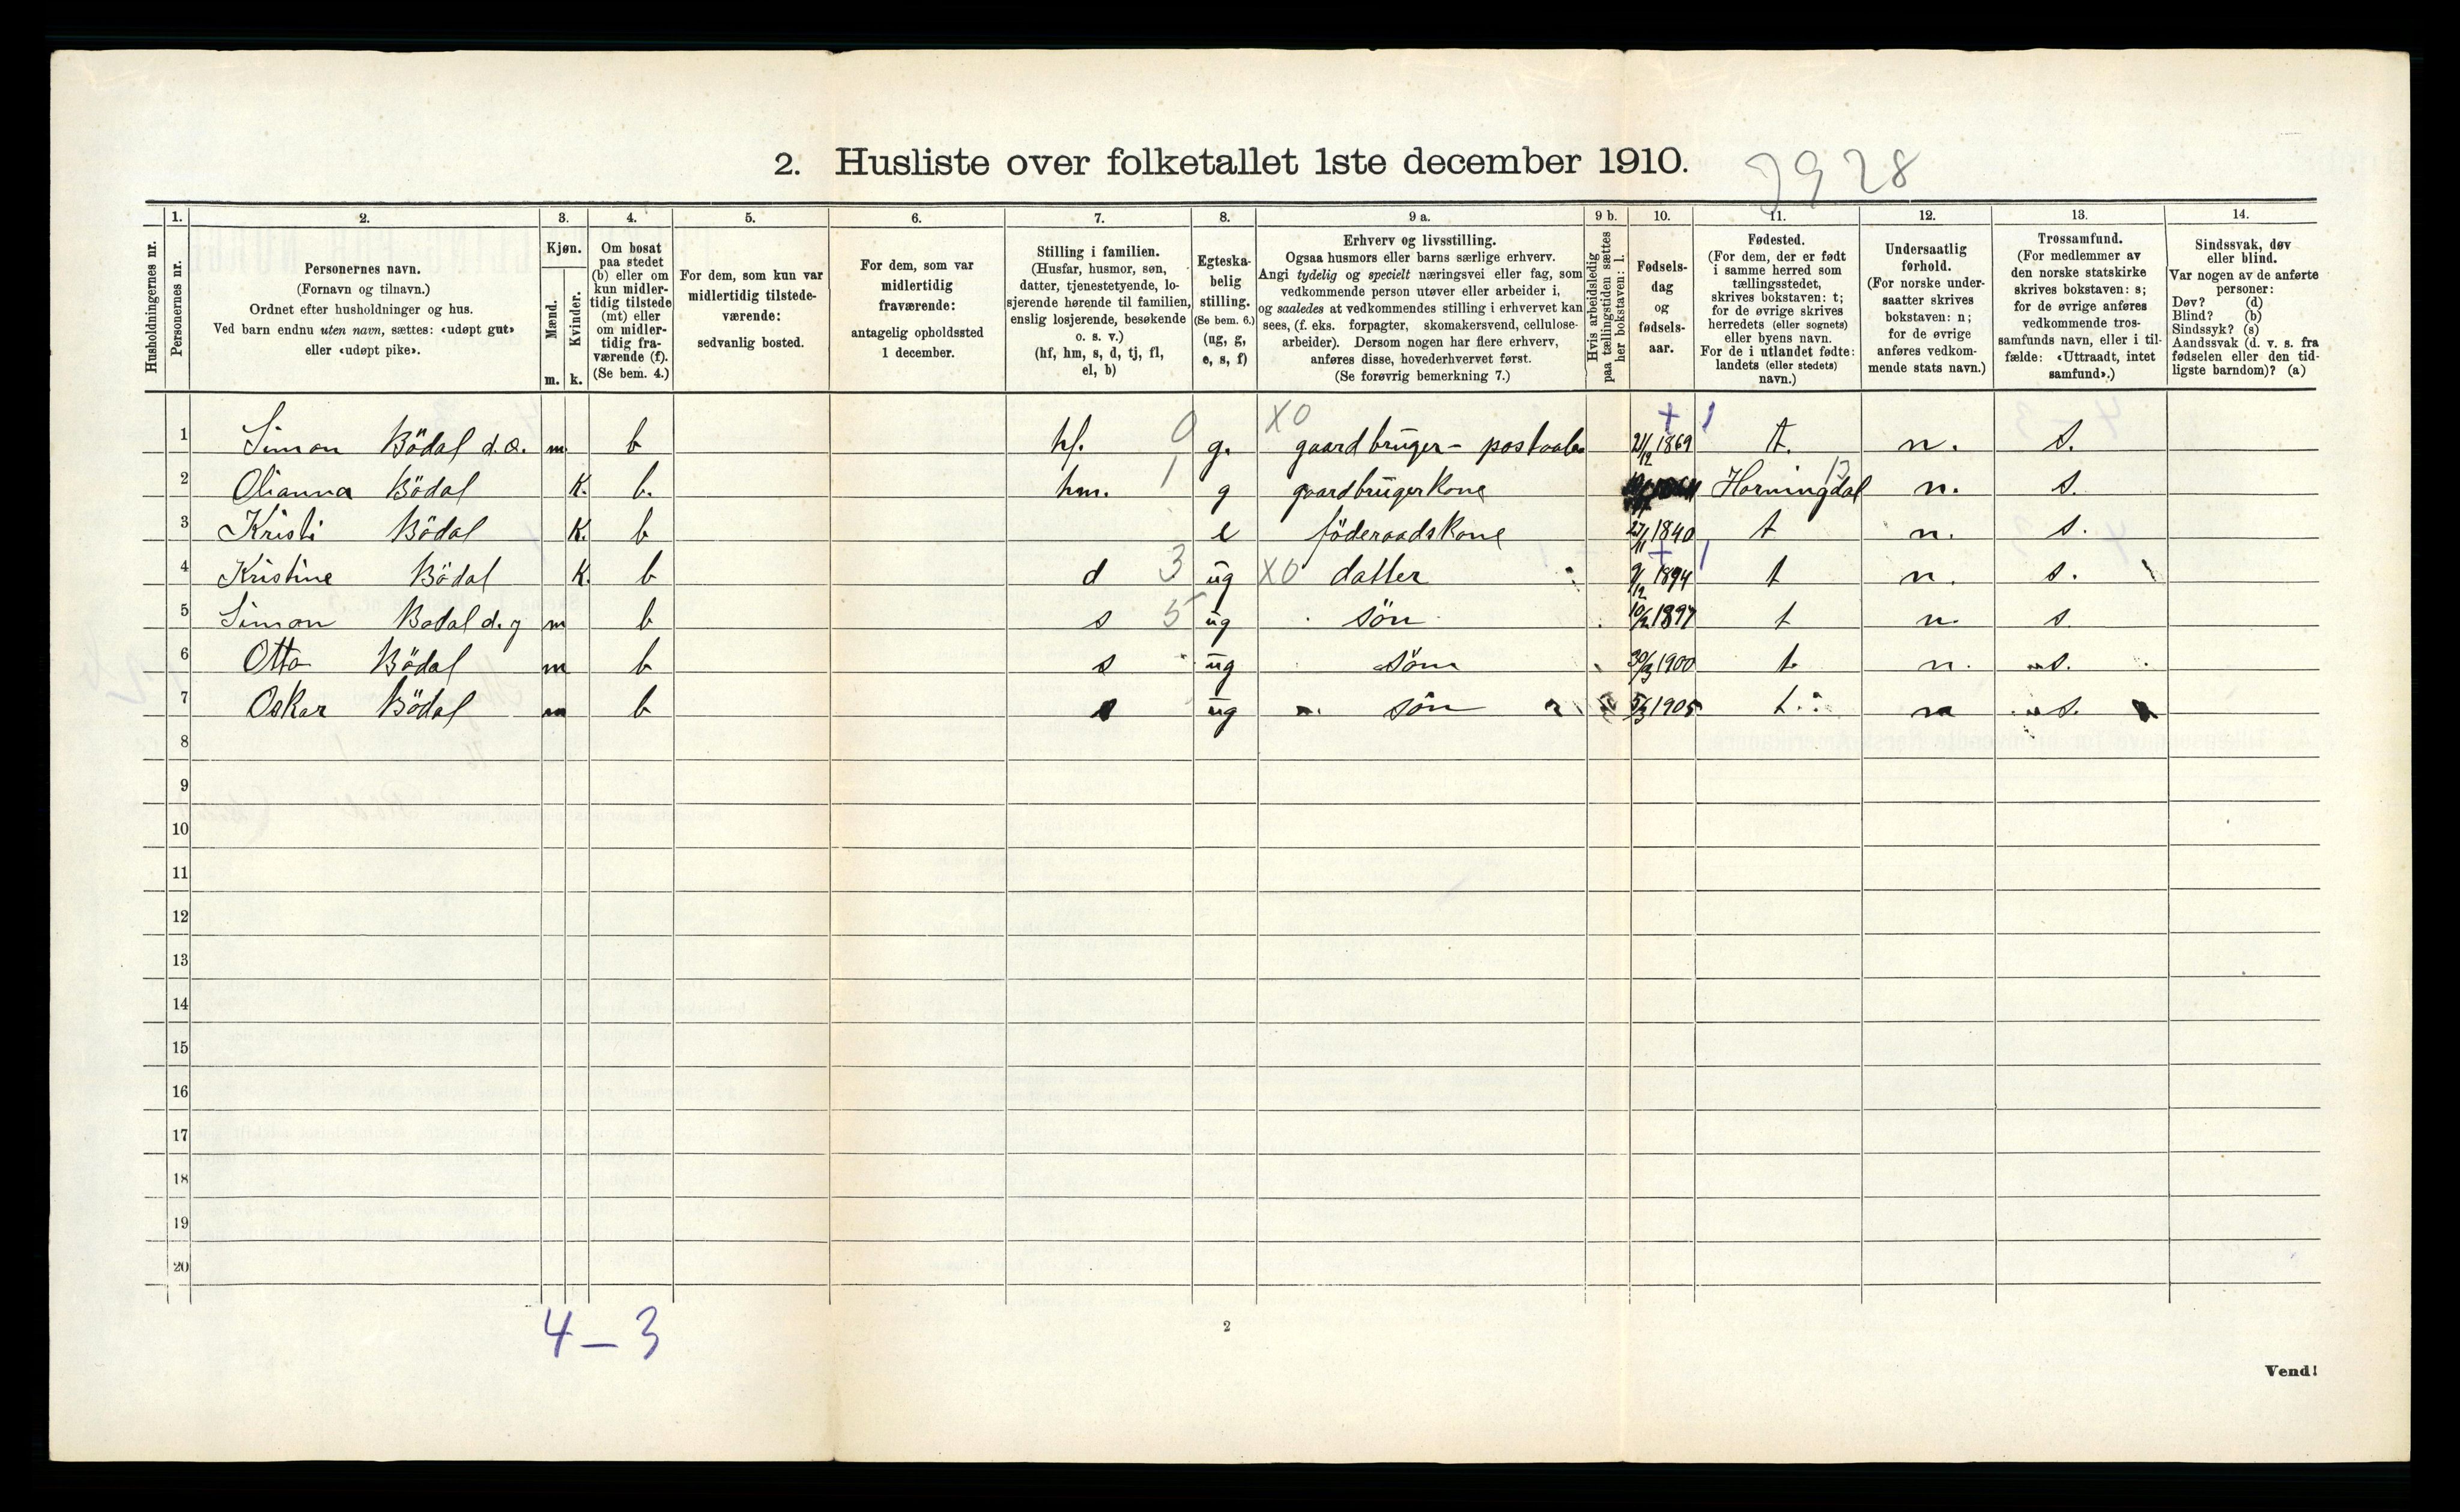 2. Husliste over folketallet 1ste december 1910.
7928
1. 2. 3. 4. 5. 6. 7. 8. 9 a. 9 b. 10. 11. 12. 13. 14.
Husholdningernes nr.
Personernes nr.
Personernes navn.
(Fornavn og tilnavn.)
Ordnet efter husholdninger og hus.
Ved barn endnu uten navn, sættes: «udøpt gut»
eller «udøpt pike».
Kjøn.
Mænd.
Kvinder.
m. k.
Om bosat
paa stedet
(b) eller om
kun midler-
tidig tilstede
(mt) eller
om midler-
tidig fra-
værende (f).
(Se bem. 4.)
For dem, som kun var
midlertidig tilstede-
værende:
sedvanlig bosted.
For dem, som var
midlertidig
fraværende:
antagelig opholdssted
1 december.
Stilling i familien.
(Husfar, husmor, søn,
datter, tjenestetyende, lo-
sjerende hørende til familien,
enslig losjerende, besøkende
o. s. v.)
(hf, hm, s, d, tj, fl,
el, b)
Egteska-
belig
stilling.
(Se bem. 6.)
(ug, g,
e, s, f)
Erhverv og livsstilling.
Ogsaa husmors eller barns særlige erhverv.
Angi tydelig og specielt næringsvei eller fag, som
vedkommende person utøver eller arbeider i,
og saaledes at vedkommendes stilling i erhvervet kan
sees, (f. eks. forpagter, skomakersvend, cellulose-
arbeider). Dersom nogen har flere erhverv,
anføres disse, hovederhvervet først.
(Se forøvrig bemerkning 7.)
Hvis arbeidsledig
paa tællingstiden sættes
her bokstaven: l.
Fødsels-
dag
og
fødsels-
aar.
Fødested.
(For dem, der er født
i samme herred som
tællingsstedet,
skrives bokstaven: t;
for de øvrige skrives
herredets (eller sognets)
eller byens navn.
For de i utlandet fødte:
landets (eller stedets)
navn.)
Undersaatlig
forhold.
(For norske under-
saatter skrives
bokstaven: n;
for de øvrige
anføres vedkom-
mende stats navn.)
Trossamfund.
(For medlemmer av
den norske statskirke
skrives bokstaven: s;
for de øvrige anføres
vedkommende tros-
samfunds navn, eller i til-
fælde: «Uttraadt, intet
samfund».)
Sindssvak, døv
eller blind.
Var nogen av de anførte
personer:
Døv? (d)
Blind? (b)
Sindssyk? (s)
Aandssvak (d. v. s. fra
fødselen eller den tid-
ligste barndom)? (a)
1 Simon Bödal d. a. m. b hf. 0 g. X0 gaardbruger - 21/12 1869 + 1 t. n. s.
2 Olianna Bödal K. b. hm. 1 g gaardbrugerkone Horningdal 12 n. s.
3 Kristi Bödal K. b e föderaadskone 27/11 1840 t n. s.
4 Kristine Bödal K. b d 3 ug X0 datter 9/12 1894 + 1 t n. s.
5 Simon Bodal d. y m b s 5 ug sön 1897 t n. s.
6 Otto Bödal m b s ug sön 30/3 1900 t. n. s.
7 Oskar Bödal m b s ug sön 5/3 1905 t. n s.
8
9
10
11
12
13
14
15
16
17
18
19
20
4 - 3
2
Vend!